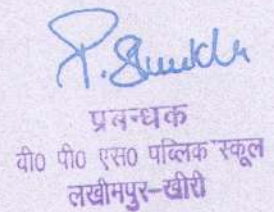 P. Shukla
प्रबन्धक
वी0 पी0 एस0 पब्लिक स्कूल
लखीमपुर-खीरी